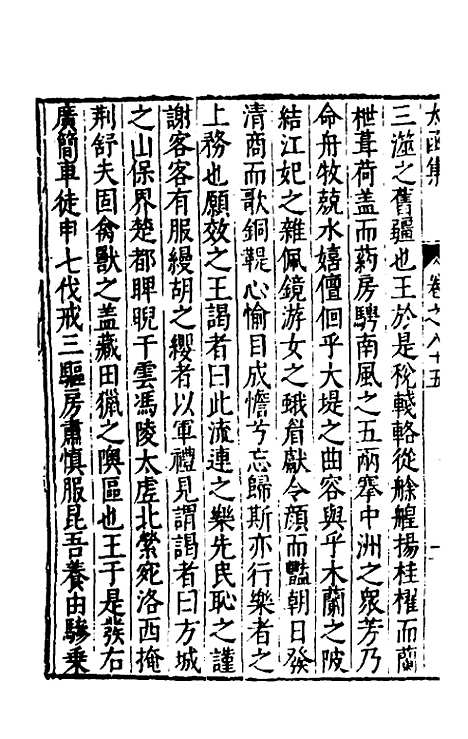 太函集 卷之八十五
三澨之舊疆也王於是稅輚輅從艅艎揚桂櫂而蘭
枻葺荷盖而葯房騁南風之五兩搴中洲之衆芳乃
命舟牧競水嬉儃佪乎大堤之曲容與乎木蘭之陂
結江妃之雜佩鏡游女之蛾眉獻令顏而豔朝日發
清商而歌銅鞮心愉目成憺兮忘歸斯亦行樂者之
上務也願效之王謁者曰此流連之樂先民恥之謹
謝客客有服縵胡之纓者以軍禮見謂謁者曰方城
之山保界楚都睥睨干雲馮陵太虛北縈宛洛西掩
荆舒夫固禽獸之盖藏田獵之隩區也王于是發右
廣簡車徒申七伐戒三驅房肅慎服昆吾養由驂乗